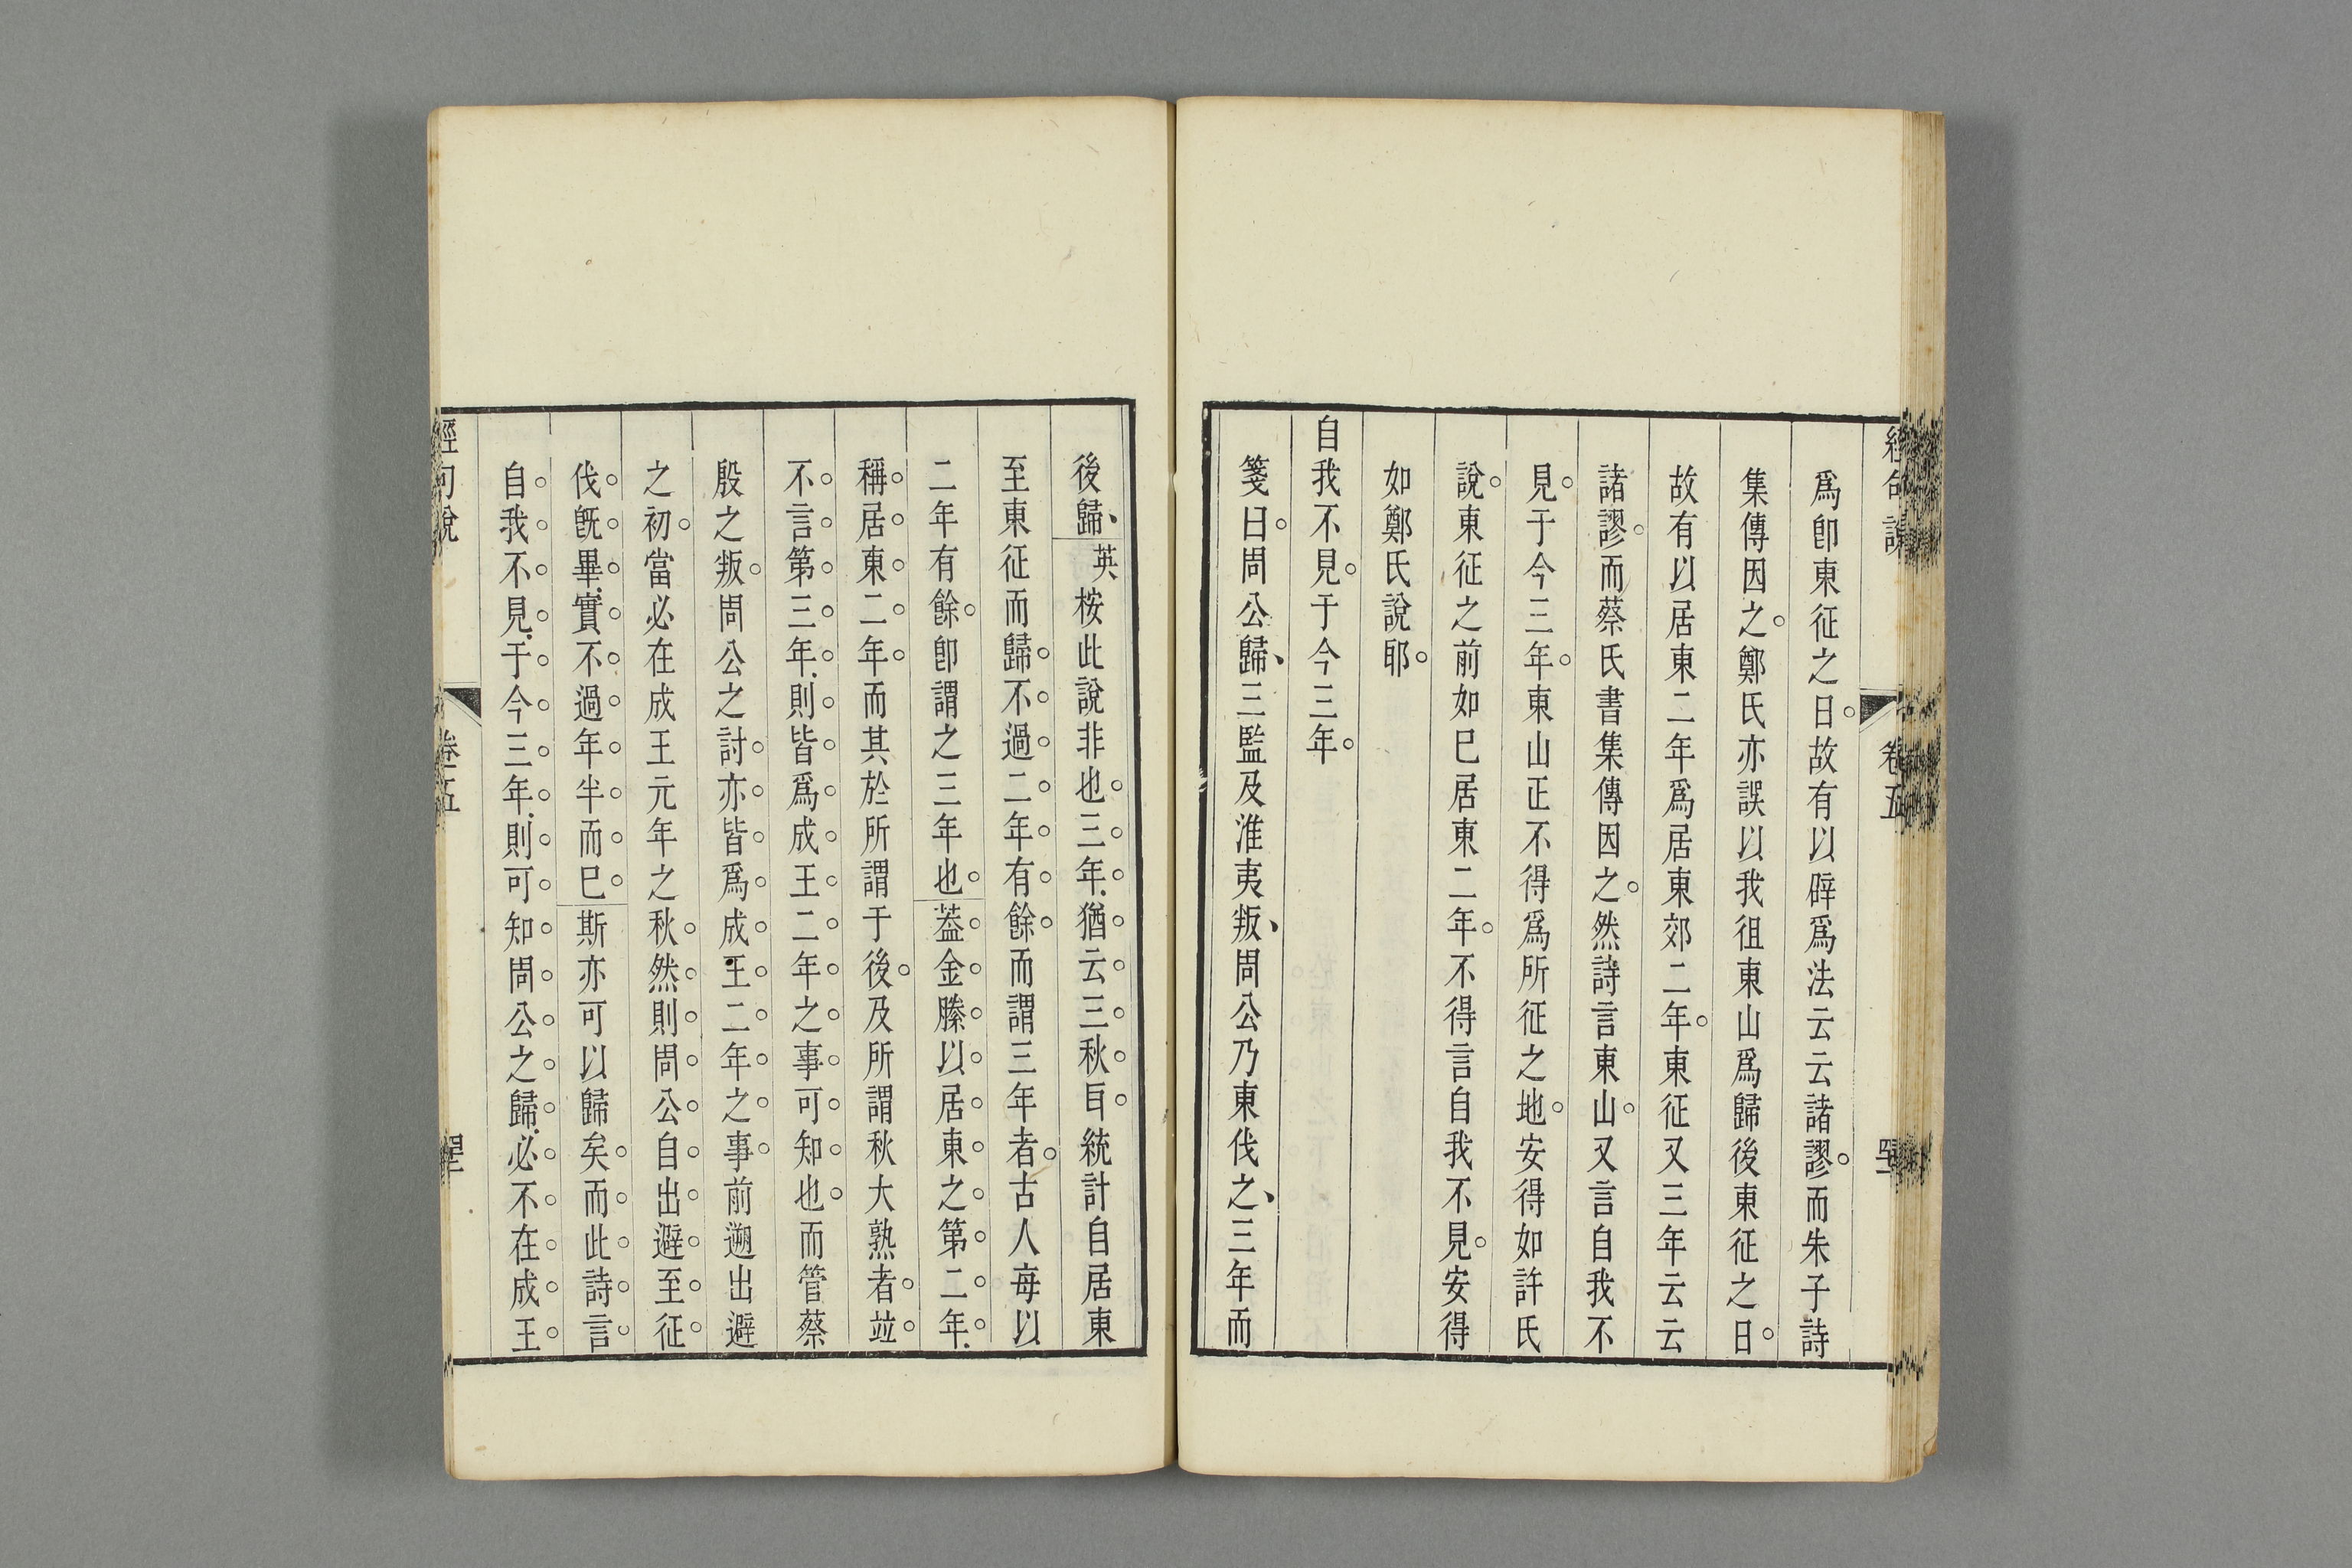 爲卽東征之日。故有以辟爲法云云諸謬。而朱子詩
集傳因之。鄭氏亦誤以我徂東山爲歸後東征之日。
故有以居東二年爲居東郊二年。東征又三年云云
諸謬。而蔡氏書集傳因之。然詩言東山。又言自我不
見。于今三年。東山正不得爲所征之地。安得如許氏
說。東征之前如已居東二年。不得言自我不見。安得
如鄭氏說耶。
自我不見。于今三年。
箋曰。周公歸、三監及淮夷叛、周公乃東伐之、三年而
後歸、英按此說非也。三年。猶云三秋耳。統計自居東
至東征而歸。不過二年有餘。而謂三年者。古人每以
二年有餘。卽謂之三年也。葢金縢以居東之第二年。
稱居東二年。而其於所謂于後。及所謂秋大熟者。竝
不言第三年。則皆爲成王二年之事可知也。而管蔡
殷之叛。周公之討。亦皆爲成王二年之事。前遡出避
之初。當必在成王元年之秋。然則周公自出避至征
伐旣畢。實不過年半而已。斯亦可以歸矣。而此詩言
自我不見。于今三年。則可知周公之歸。必不在成王
經句說
卷五